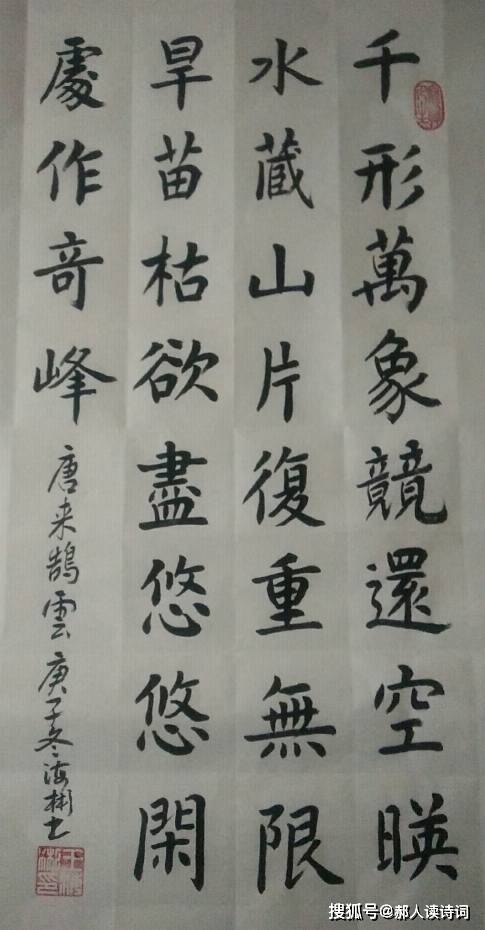 千形萬象競還空暎
水藏山片復重無限
旱苗枯欲盡悠悠閑
處作奇峰
唐来鵠雲庚子冬海彬书
搜狐号@郝人读诗词